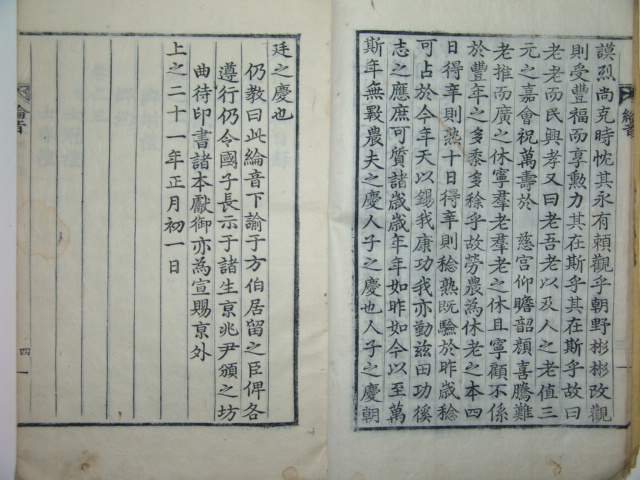 謨烈尚克時忱其永有賴觀乎朝野彬彬改觀
則受豊福而享勲力其在斯乎其在斯乎故曰
老老而民興孝又曰老吾老以及人之老值三
元之嘉會祝萬壽於 慈宮仰瞻韶顏喜騰難
老推而廣之休寧羣老羣老之休且寧顧不係
於豐年之多黍多稌乎故勞農為休老之本四
日得辛則熟十日得辛則稔熟既驗於昨歲稔
可占於今年天以錫我康功我亦勤玆田功徯
志之應庶可質諸歲歲年年如昨如今以至萬
斯年無斁農夫之慶人子之慶也人子之慶朝
廷之慶也
仍教曰此綸音下諭于方伯居留之臣俾各
遵行仍令國子長示予諸生京兆尹頒之坊
曲待印書諸本獻御亦為宣賜京外
上之二十一年正月初一日
綸音
四
綸音